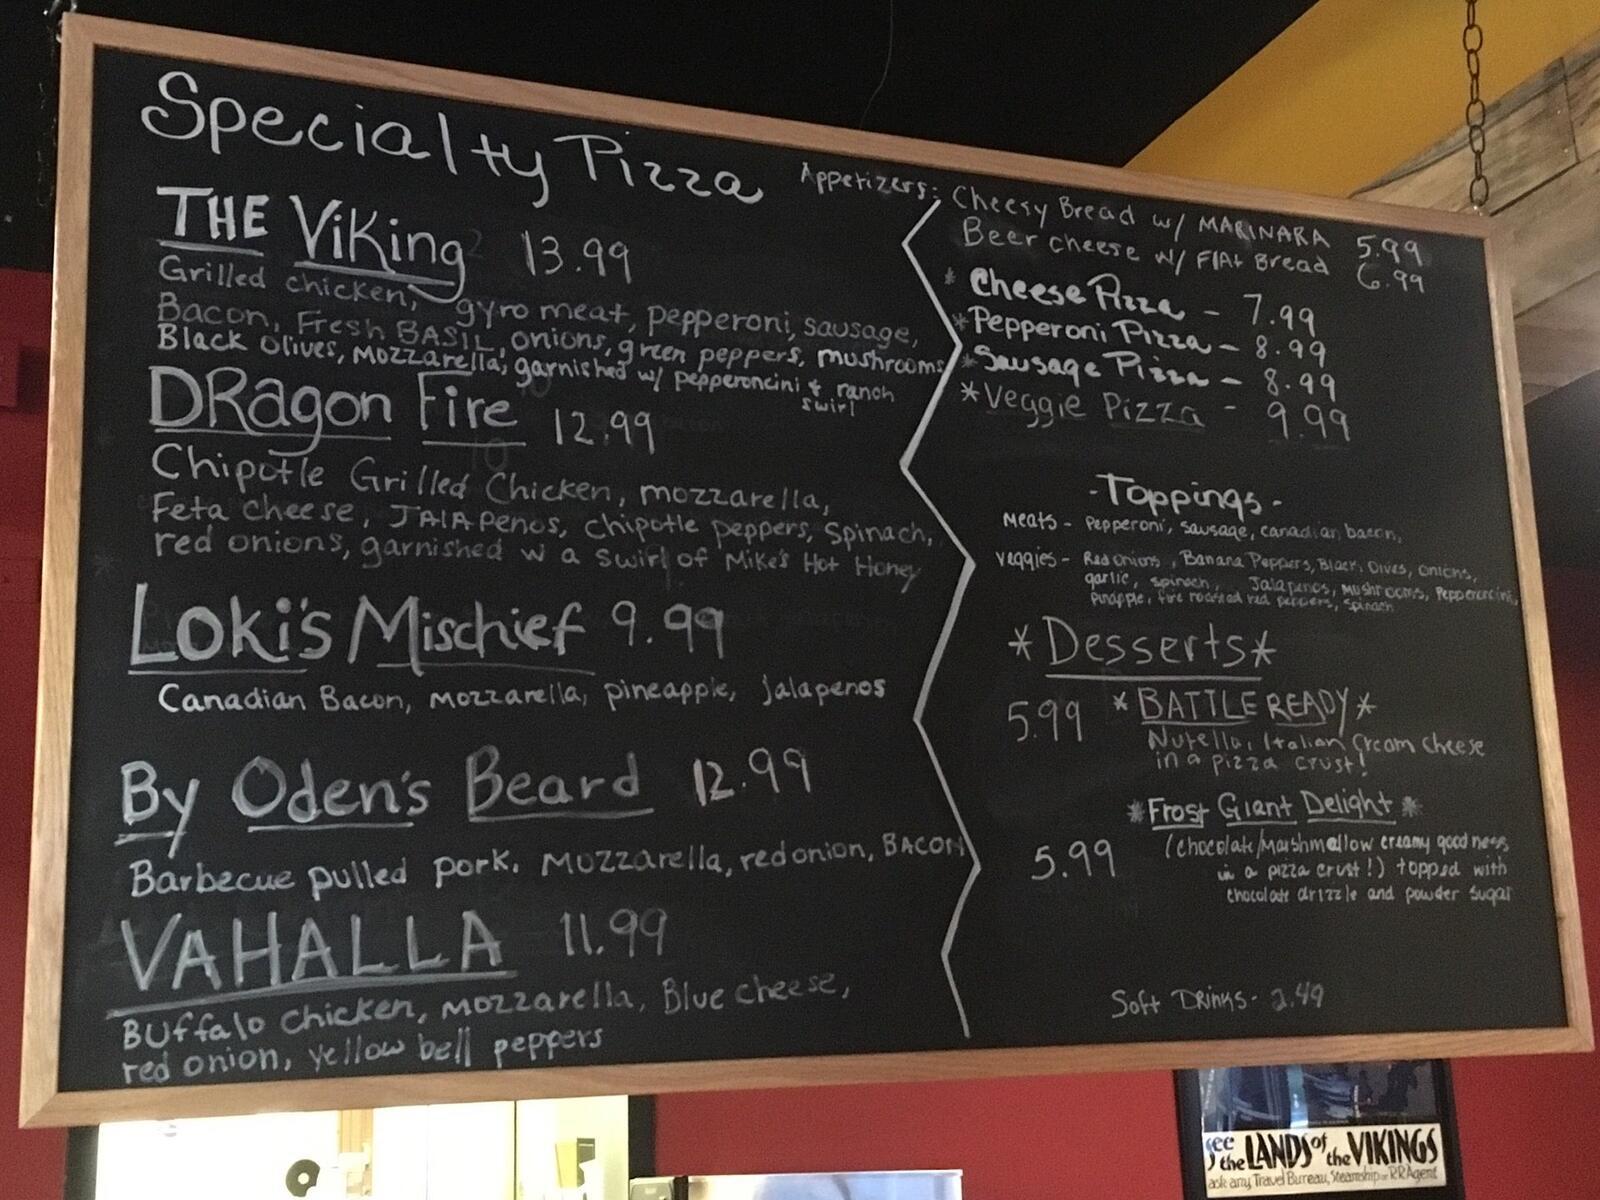 Specialty Pizza
THE Viking 13.99
Grilled chicken, gyro meat, pepperoni, sausage,
Bacon, Fresh BASIL, onions, green peppers, mushrooms
Black olives, Mozzarella, garnished w/ pepperoncini & ranch
swirl
DRagon Fire 12.99
Chipotle Grilled Chicken, mozzarella,
Feta cheese, JAlAPenos, chipotle peppers, Spinach,
red onions, garnished w a swirl of Mike's Hot Honey
Loki's Mischief 9.99
Canadian Bacon, mozzarella, pineapple, jalapenos
By Oden's Beard 12.99
Barbecue pulled pork, Mozzarella, red onion, BACON
VAHALLA 11.99
Buffalo chicken, mozzarella, Blue cheese,
red onion, yellow bell peppers
Appetizers: Cheesy Bread w/ MARINARA 5.99
Beer cheese w/ FlAt Bread 6.99
* Cheese Pizza - 7.99
* Pepperoni Pizza - 8.99
* Sausage Pizza - 8.99
* Veggie Pizza - 9.99
- Toppings -
Meats - Pepperoni, sausage, canadian bacon,
veggies - Red onions, Banana Peppers, Black Olives, onions,
garlic, spinach, Jalapenos, Mushrooms, Pepperoncini,
pineapple, fire roasted red peppers, spinach
* Desserts *
5.99 * BATTLE READY *
Nutella, Italian cream cheese
in a pizza crust!
* Frost Giant Delight *
5.99 (chocolate/Marshmallow creamy goodness
in a pizza crust!) topped with
chocolate drizzle and powder sugar
Soft DRinks - 2.49
see the LANDS of the VIKINGS
ask any Travel Bureau, Steamship or RR Agent